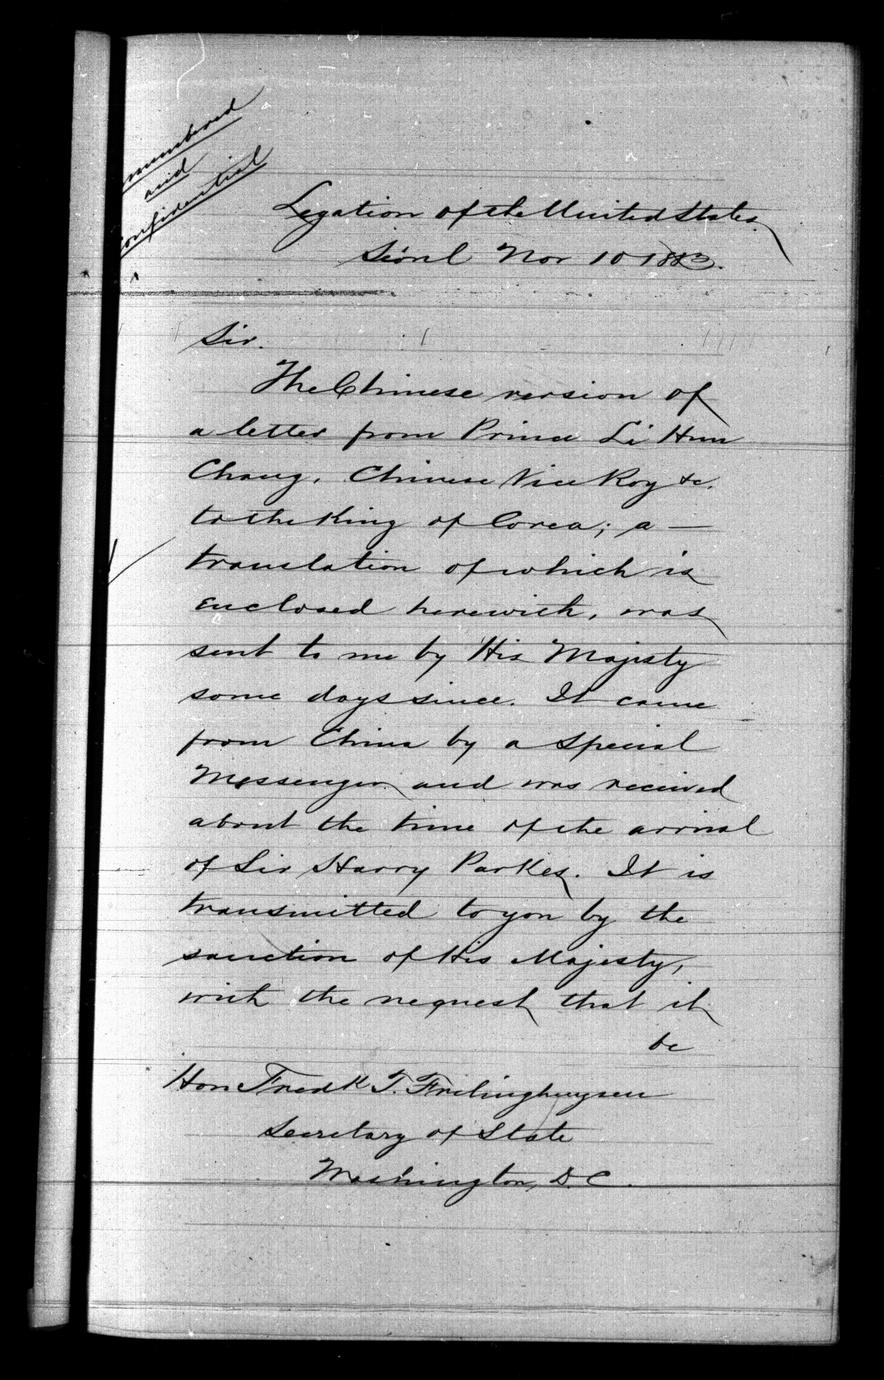 numbered
and
onfidential
Legation of the United States.
Sëoul Nov 10 1883.
Sir.
The Chinese version of
a letter from Prince Li Hun
Chang, Chinese Vice Roy &c.
to the King of Corea; a —
translation of which is
enclosed herewith, was
sent to me by His Majesty
some days since. It came
from China by a special
Messenger and was received
about the time of the arrival
of Sir Harry Parkes. It is
transmitted to you by the
sanction of His Majesty,
with the request that it
be
Hon Fredk T. Frelinghuysen
Secretary of State
Washington, D.C.